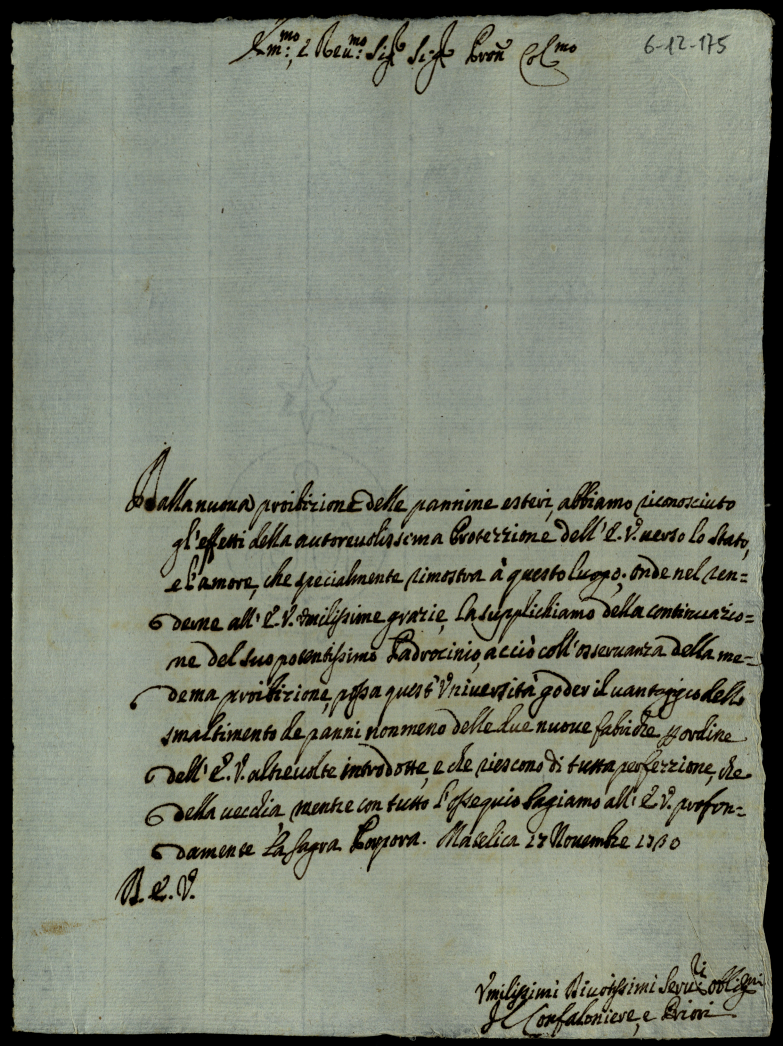 Em:mo, e Reu:mo Sig.r Sig.r Pron Col.mo
6-12-175
Dalla nuoua proibizione delle pannine esteri, abbiamo riconosciuto
gl'effetti della autoreuolissima Protezzione dell'E.V. uerso lo Stato,
e l'amore, che specialmente rimostra à questo luogo; onde nel ren=
derne all'E.V. umilissime grazie, la supplichiamo della continuazio=
ne del suo potentissimo Padrocinio, acciò coll'osseruanza della me=
dema proibizione, possa quest'Vniuersità goder il uantaggio dello
smaltimento de panni non meno delle due nuoue fabriche p ordine
dell'E.V. altreuolte introdotte, e che riescono di tutta perfezzione, che
della uecchia, mentre con tutto l'ossequio bagiamo all'E.V. profon=
damente la sagra Porpora. Matelica 27 Nouembre
D. E. V.
Vmilissimi Diuotissimi Seru:ri obbligmi
Il Confaloniere, e Priori